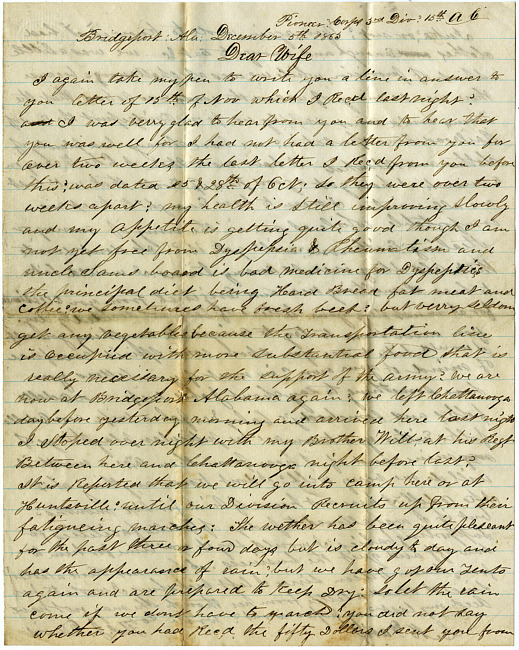 Pioneer Corps 3rd Div. 15th A C
Bridgeport Ala. December 5th 1863
Dear Wife
I again take my pen to write you a line in answer to
you letter of 15th of Nov which I Recd last night:
I was verry glad to hear from you and to hear that
you was well for I had not had a letter from you for
over two weeks the last letter I Recd from you before
this: was dated 25 & 28th of Oct: so they were over two
weeks apart: my health is still improving slowly
and my Appetite is getting quite good though I am
not yet free from Dyspepsia & Rheumatism and
uncle Sams board is bad medicine for Dyspeptics
the principal diet being Hard Bread fat meat and
Coffee: we sometimes have fresh beef: but verry seldom
get any vegetables because the transportation line
is occupied with more substantial food that is
really necissary for the support of the army: we are
now at Bridgeport Alabama again: we left Chattanooga
day before yesterday morning and arrived here last night
I stoped over night with my Brother Will at his Regt
Between here and Chattanooga night before last:
It is Reported that we will go into camp here or at
Huntsville: until our Division Recruits up from their
fatigueing marches: The wether has been quite pleasant
for the past three or four days but is cloudy to day and
has the appearance of rain: but we have got our Tents
again and are prepared to Keep Dry: so let the rain
come if we dont have to march: you did not say
whether you had Recd the fifty Dollars I sent you from